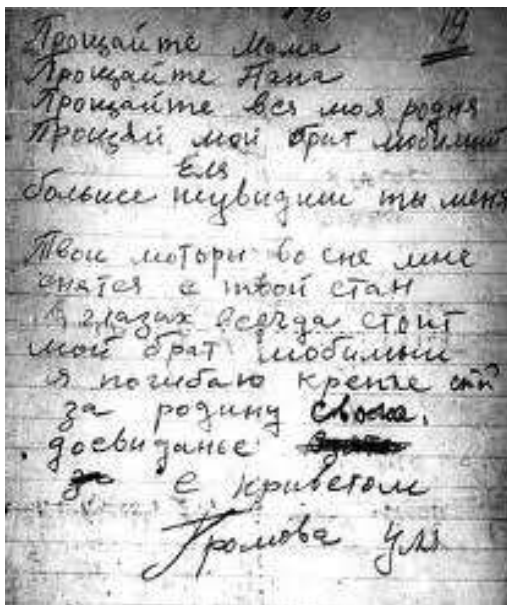 896
19
Прощайте Мама
Прощайте Папа
Прощайте вся моя родня
Прощай мой брат любимый
Еля
больше неувидиш ты меня
Твои мотори во сне мне
снятся и твой стан
в глазах всегда стоит
мой брат любимый
я погибаю крепче стй
за родину свою.
досвиданье
с приветом
Громова Уля